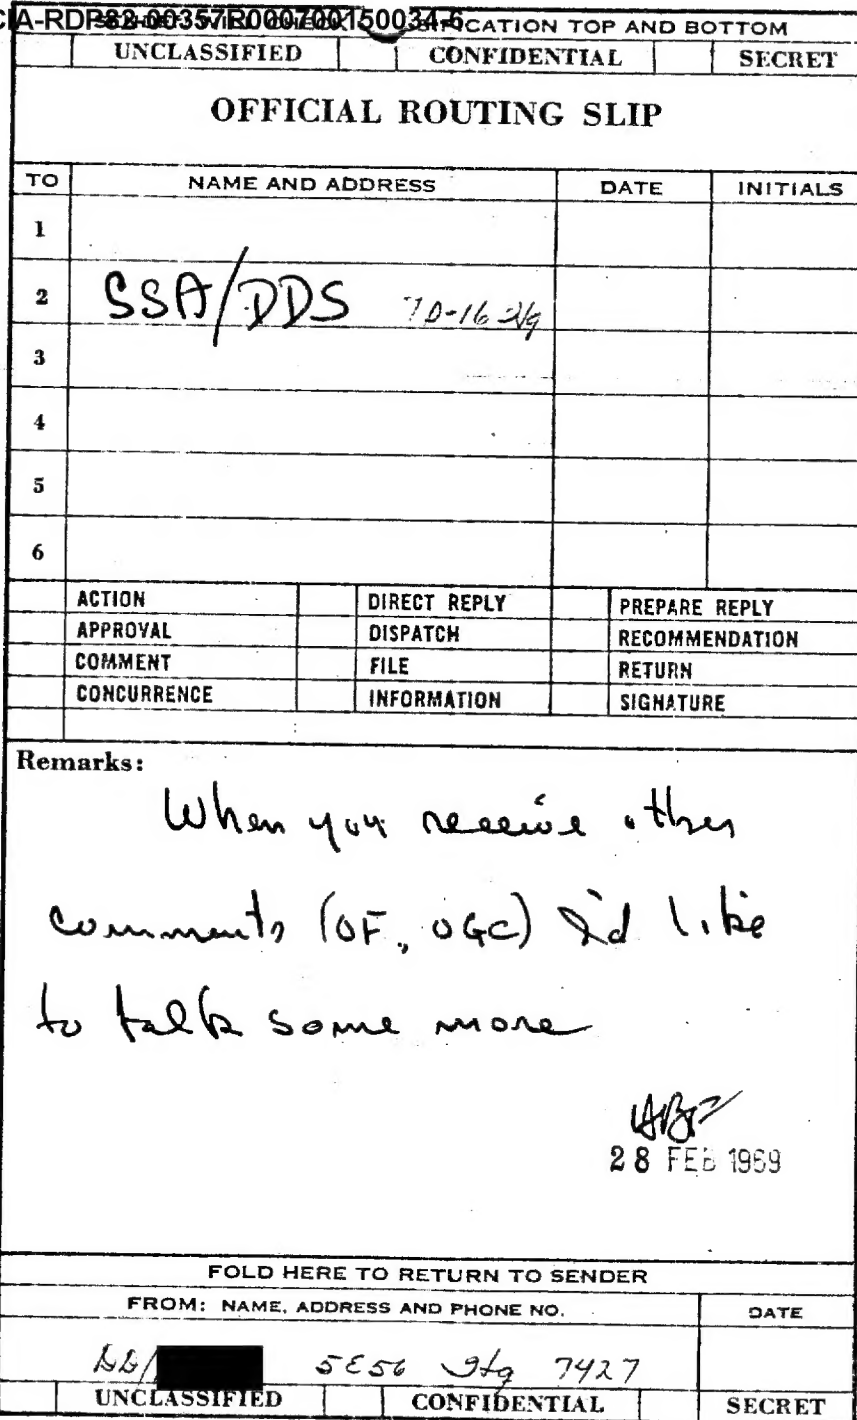 CIA-RDP82-00357R000700150034-6
CATION TOP AND BOTTOM
UNCLASSIFIED CONFIDENTIAL SECRET
OFFICIAL ROUTING SLIP
TO NAME AND ADDRESS DATE INITIALS
1
2 SSA/DDS 7D-16
3
4
5
6
ACTION DIRECT REPLY PREPARE REPLY
APPROVAL DISPATCH RECOMMENDATION
COMMENT FILE RETURN
CONCURRENCE INFORMATION SIGNATURE
Remarks:
When you receive other
comments (OF, OGC) I'd like
to talk some more
28 FEB 1969
FOLD HERE TO RETURN TO SENDER
FROM: NAME, ADDRESS AND PHONE NO. DATE
DD/ 5E56 Hq 7427
UNCLASSIFIED CONFIDENTIAL SECRET